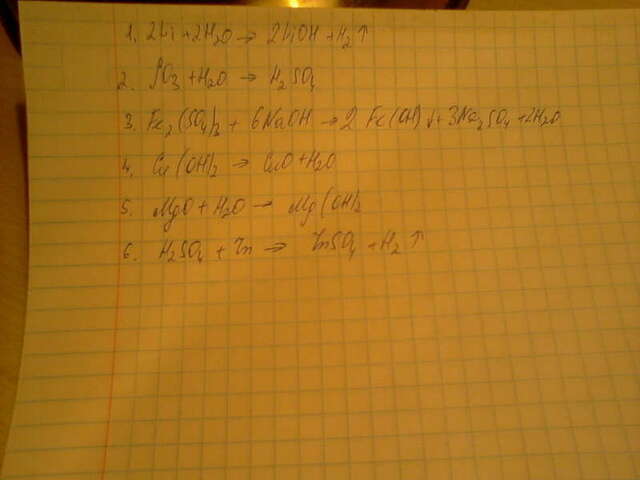 1. 2Li + 2H2O → 2LiOH + H2↑
2. SO3 + H2O → H2SO4
3. Fe2(SO4)3 + 6NaOH → 2 Fe(OH)↓ + 3Na2SO4 + 2H2O
4. Cu(OH)2 → CuO + H2O
5. MgO + H2O → Mg(OH)2
6. H2SO4 + Zn → ZnSO4 + H2↑